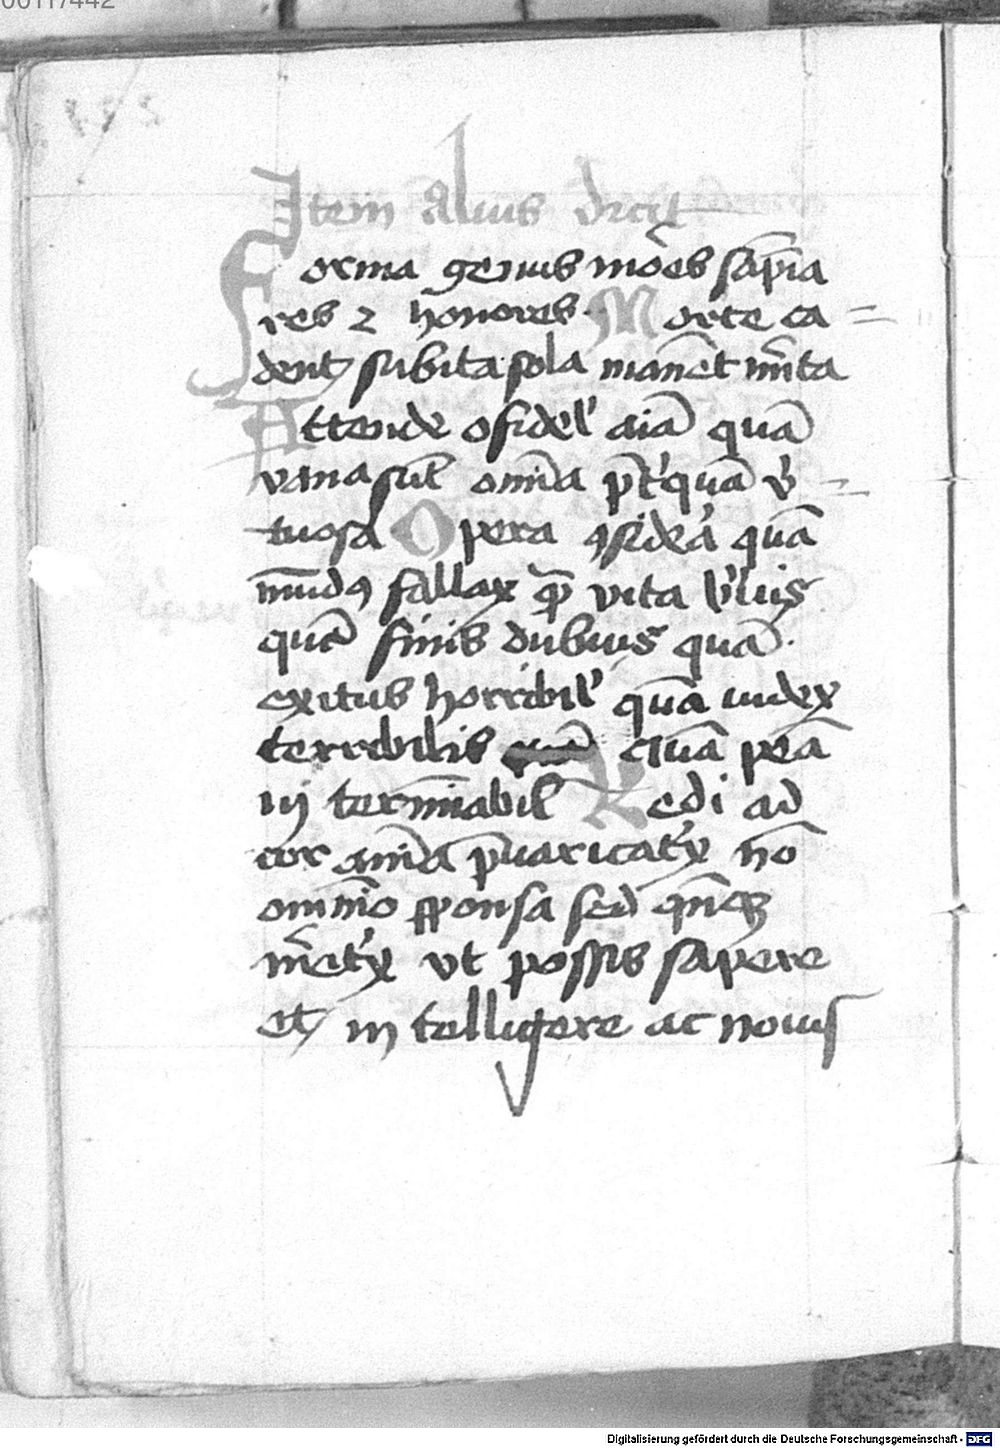 00117442
Item alius dicit
Forma genus mōes sāpia
res ⁊ honores. Morte ca=
dent subita sola manēt m̄ita
Attende o fidel' aīa quā
vana sūt omīa p̄t'quā v'=
tuosa Opera ꝯsidēa quā
mūdꝰ fallax quā vita
quā finis dubius quā
exitus horribil' quā iudex
terribilis quā pēa
in termīabil' Redi ad
cor anīa p̄uaricat'x nō
omnīo sponsa sed
m̄et'x ut possis sapere
et in telligere ac nouis
Digitalisierung gefördert durch die Deutsche Forschungsgemeinschaft - DFG